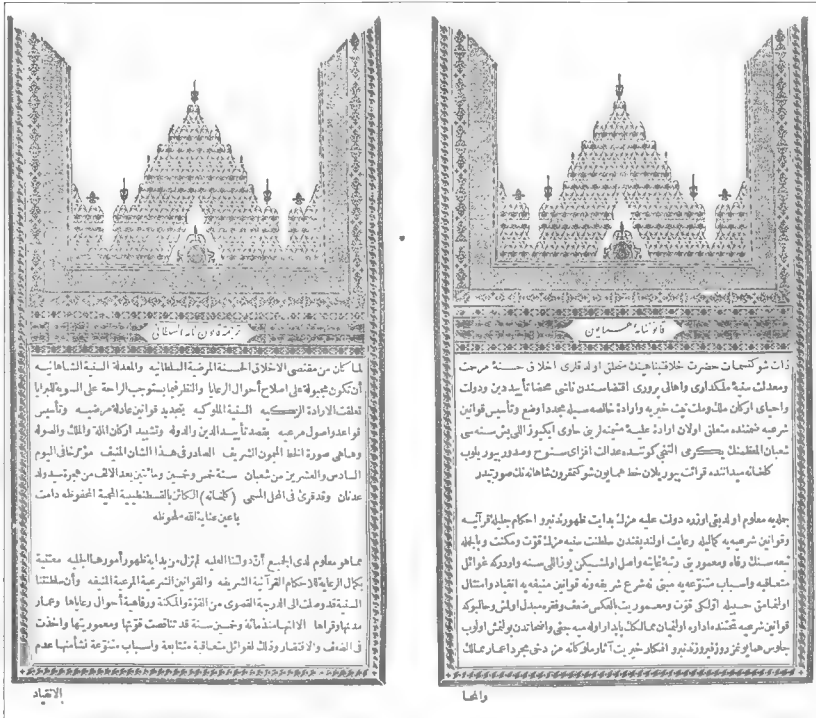 قانوننامهٔ همايون
ذات شوكتسمات حضرت خلافتپناهينك متعلق اولدقلرى اخلاق حسنهٔ مرحمت
ومعدلت سنيهٔ ملكدارى واهالى پرورى اقتضاسندن ناشى محضا تأييد دين ودولت
واحياى اركان ملك وملت نيت خيريه وارادهٔ خالصه سيله مجددا وضع وتأسيس قوانين
شرعيه ضمننده متعلق اولان ارادهٔ عليهٔ متيمنه لرينى حاوى ايكيوز اللى بش سنه سى
شعبان المعظمنك يكرمى التنجى كوننده عدالت افزاى سنوح وصدور بيوريلوب
كلخانه ميداننده قرائت بيوريلان خط همايون شوكتمقرون شاهانه نك صورتيدر
جمله يه معلوم اولديغى اوزره دولت عليه مزك بدايت ظهورندنبرو احكام جليلهٔ قرآنيه
وقوانين شرعيه يه كماليله رعايت اولنديغندن سلطنت سنيه مزك قوت ومكنت وبالجمله
تبعه سنك رفاه ومعموريتى رتبهٔ غايته واصل اولمشيكن يوز اللى سنه واردركه غوائل
متعاقبه واسباب متنوعه يه مبنى نه شرع شريفه ونه قوانين منيفه يه انقياد وامتثال
اولنمامق حسبيله اولكى قوت ومعموريت بالعكس ضعف وفقره مبدل اولمش وحالبوكه
قوانين شرعيه تحتنده اداره اولنميان ممالكك پايدار اوله ميه جغى واضحاتدن بولنمش اولوب
جلوس همايونمز روز فيروزندنبرو افكار خيريت آثار ملوكانه مز دخى مجرد اعمار ممالك
والحا
ترجمة قانون نامه السلطانى
لما كان من مقتضى الاخلاق الحسنة المرضية السلطانيه والمعدلة السنية الشاهانيه
أن تكون مجبولة على اصلاح أحوال الرعايا والنظر فيما يستوجب الراحة على السوية للبرايا
تعلقت الارادة الزكيه السنية الملوكيه بتجديد قوانين عادلة مرضيه وتأسيس
قواعد واصول مرعيه بقصد تأييد الدين والدوله وتشييد اركان الملة والملك والصوله
وهاهى صورة الخط الهمايون الشريف الصادر فى هذا الشان المنيف مؤرخا فى اليوم
السادس والعشرين من شعبان سنة خمس وخمسين ومائتين بعد الالف من هجرة سيد ولد
عدنان وقد قرئ فى المحل المسمى (كلخانه) الكائن بالقسطنطينية المحمية المحفوظه دامت
بأعين عناية الله ملحوظه
مما هو معلوم لدى الجميع أن دولتنا العليه لم تزل من بداية ظهور أمورها الجليله معتنية
بكمال الرعاية للاحكام القرآنية الشريفه والقوانين الشرعية المرعية المنيفه وأن سلطنتنا
السنية قد وصلت الى الدرجة القصوى من القوة والمكنة ورفاهية أحوال رعاياها وعمار
مدنها وقراها الا انها منذ مائة وخمسين سنة قد تناقصت قوتها ومعموريتها وأخذت
فى الضعف والافتقار وذلك لغوائل متعاقبة متتابعة واسباب متنوعة نشأ منها عدم
الانقياد